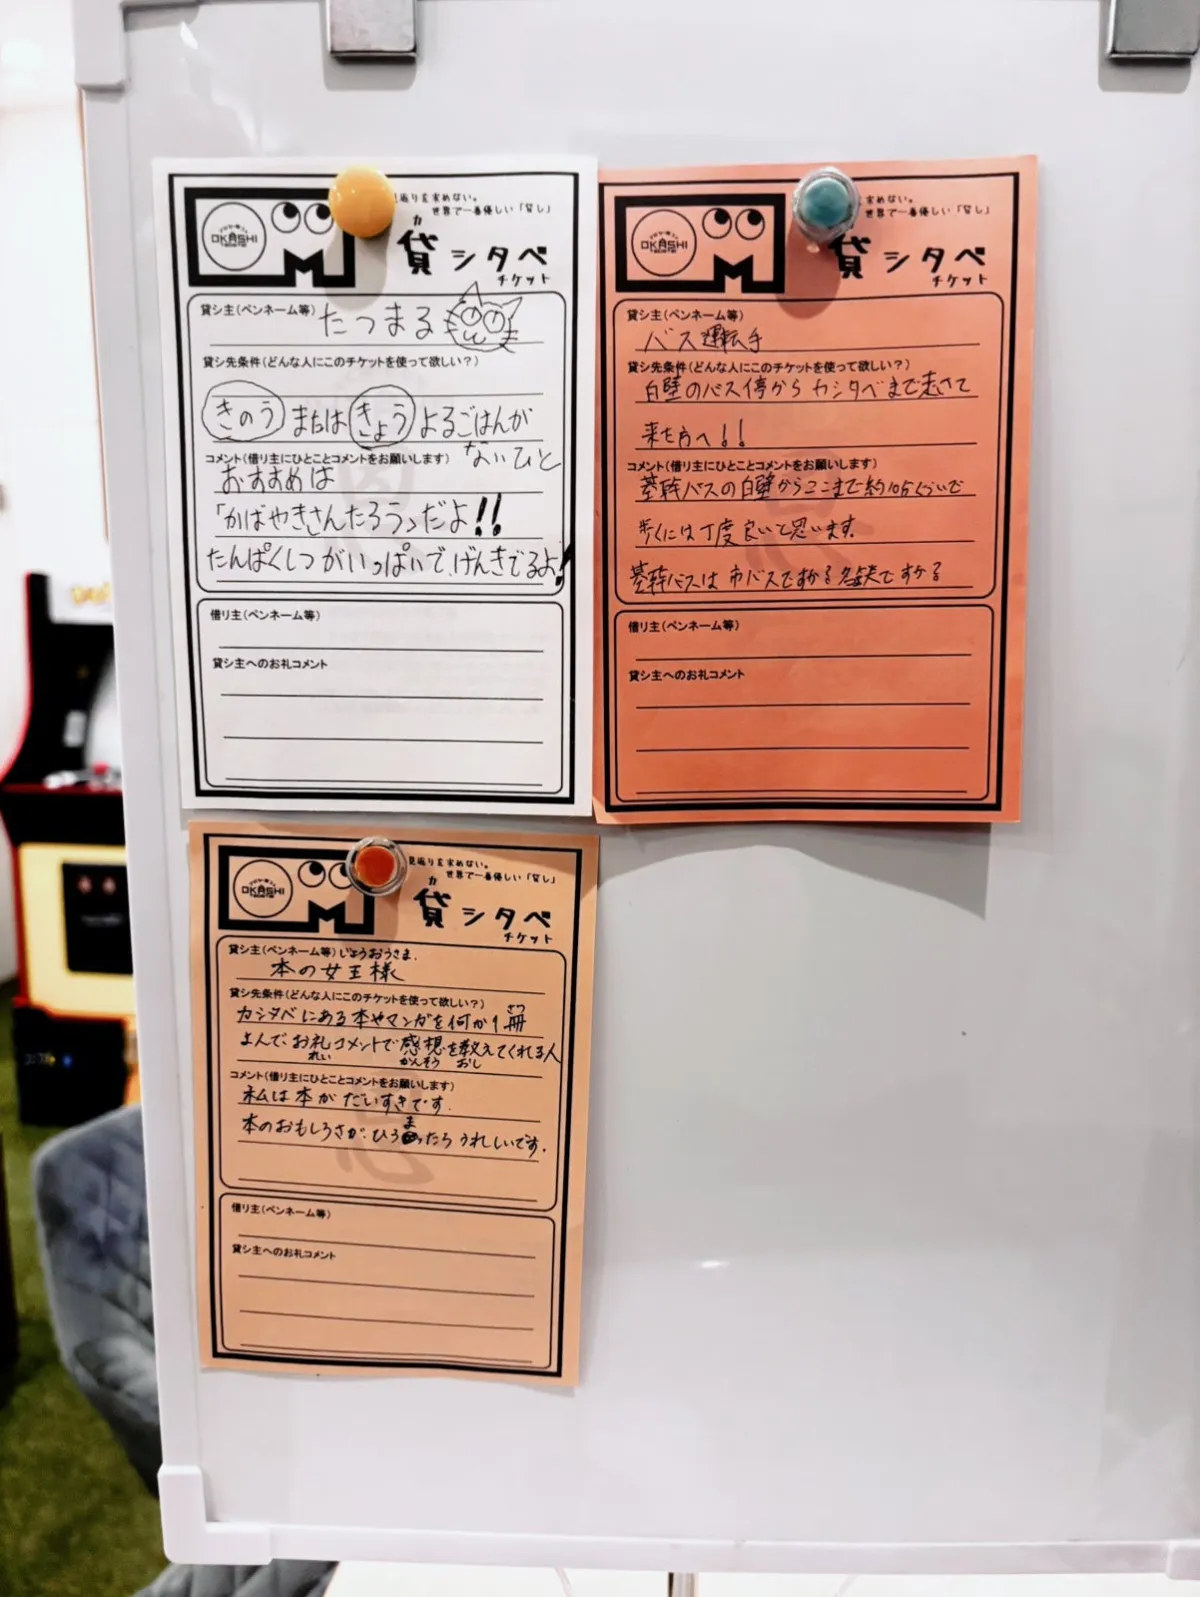 見返りを求めない。
世界で一番優しい「貸し」
OKASHI
カ
貸シタベ
チケット
貸シ主(ペンネーム等) たつまる
貸シ先条件(どんな人にこのチケットを使って欲しい?)
きのう または きょう よるごはんが
ないひと
コメント(借リ主にひとことコメントをお願いします)
おすすめは
「かばやきさんたろう」だよ!!
たんぱくしつがいっぱいで、げんきでるよ!
借リ主(ペンネーム等)
貸シ主へのお礼コメント
求めない。
世界で一番優しい「貸し」
OKASHI
貸シタベ
チケット
貸シ主(ペンネーム等)
バス運転手
貸シ先条件(どんな人にこのチケットを使って欲しい?)
白壁のバス停からカシタベまで歩いて
来た方へ!!
コメント(借リ主にひとことコメントをお願いします)
基幹バスの白壁からここまで約10分くらいで
歩くには丁度良いと思います。
基幹バスは市バスですかる名鉄ですかる
借リ主(ペンネーム等)
貸シ主へのお礼コメント
見返りを求めない。
世界で一番優しい「貸し」
OKASHI
カ
貸シタベ
チケット
貸シ主(ペンネーム等) じょうおうさま.
本の女王様
貸シ先条件(どんな人にこのチケットを使って欲しい?)
さつ
カシタベにある本やマンガを何か1冊
よんで、お礼コメントで感想を教えてくれる人
れい かんそう おし
コメント(借リ主にひとことコメントをお願いします)
私は本がだいすきです.
本のおもしろさが、ひろまったらうれしいです.
借リ主(ペンネーム等)
貸シ主へのお礼コメント